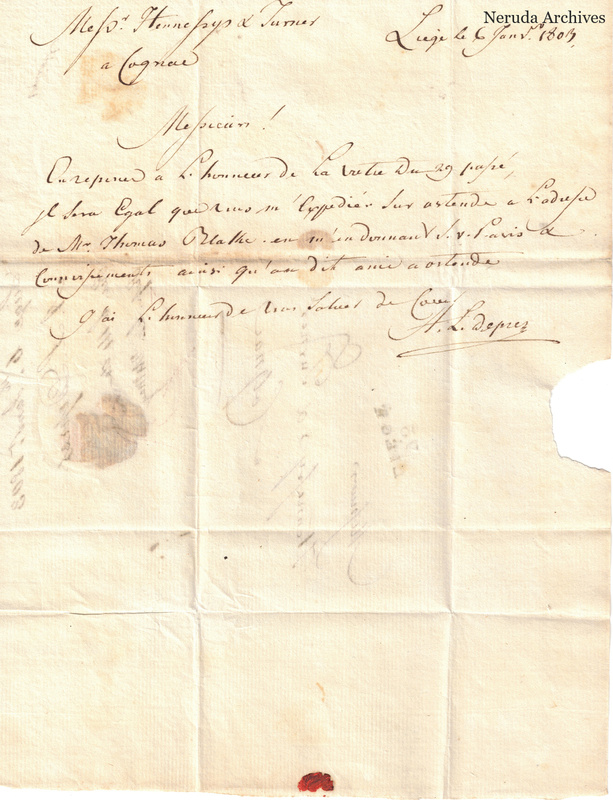 Neruda Archives
Mess.rs Hennessys & Turner
Liège le 6 Janv.r 1803,
a Cognac
Messieurs!
En reponce a L'honneur de La votre Du 29 passé,
il Sera Egal que vous m'Expediés Sur ostende a L'adresse
de Mr. Thomas en m'en donnant S. v. L'avis &
ainsi qu'au dit ami a ostende
J'ai L'honneur de vous Saluer de Coeur
H. L. deprez
LIEGE